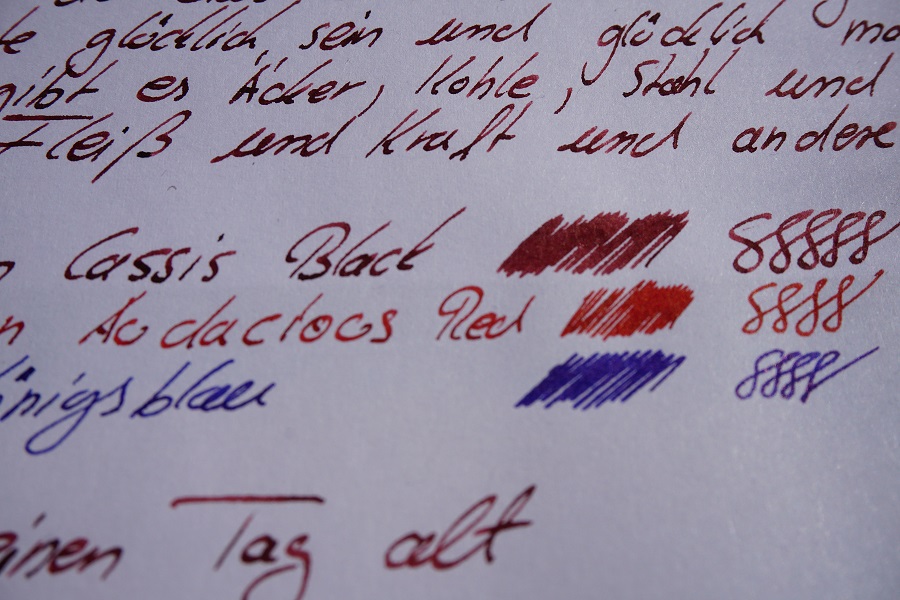 glücklich sein und glücklich
gibt es Äcker, Kohle, Stahl und
Fleiß und Kraft und andere
Cassis Black
Audacious Red
Königsblau
einen Tag alt